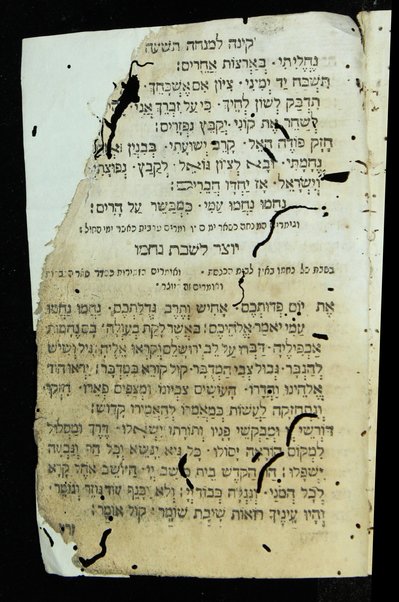 קינה למנחה תשעה
נחליתי · בארצות אחרים:
תשכח יד ימיני · ציון אם אשכחך ·
תדבק לשון לחיך · כי על זכרך אני
לשחר את קוני יקבץ נפזרים:
חזק פודה האל · קרב ישועתי · בבנין
נחמתי · ובא לציון גואל · לקבץ נפוצתי
וישראל · אז יחדו חברים:
נחמו נחמו עמי · כמבשר על הרים:
יוצר לשבת נחמו
את יום פדותכם · אחיש ותרב גדלתכם · נחמו נחמו
עמי יאמר אלהיכם: כאשר לקת בעולה
דברו על לב ירושלם וקראו אליה · גיל ושיש
להגבר · נבול צבי המדבר · קול קורא במדבר: יראו הוד
אלהינו והדרו · העושים צביונו ומצפים פארו · חזקו
לעשות כמאמרו להאמירו קדוש:
דורשי ומבקשי פניו ותורתו ישאלו · דרך ומסלול
למקום הוראה יסולו · כל גיא ינשא וכל הר וגבעה
ישפלו: הר הקדש בית מושב יי · היושב אחר קרא
לכל המוני · ונגלה כבוד יי: ולא יכנף עוד
והיו עיניך רואות שיבת שומר · קול אומר: